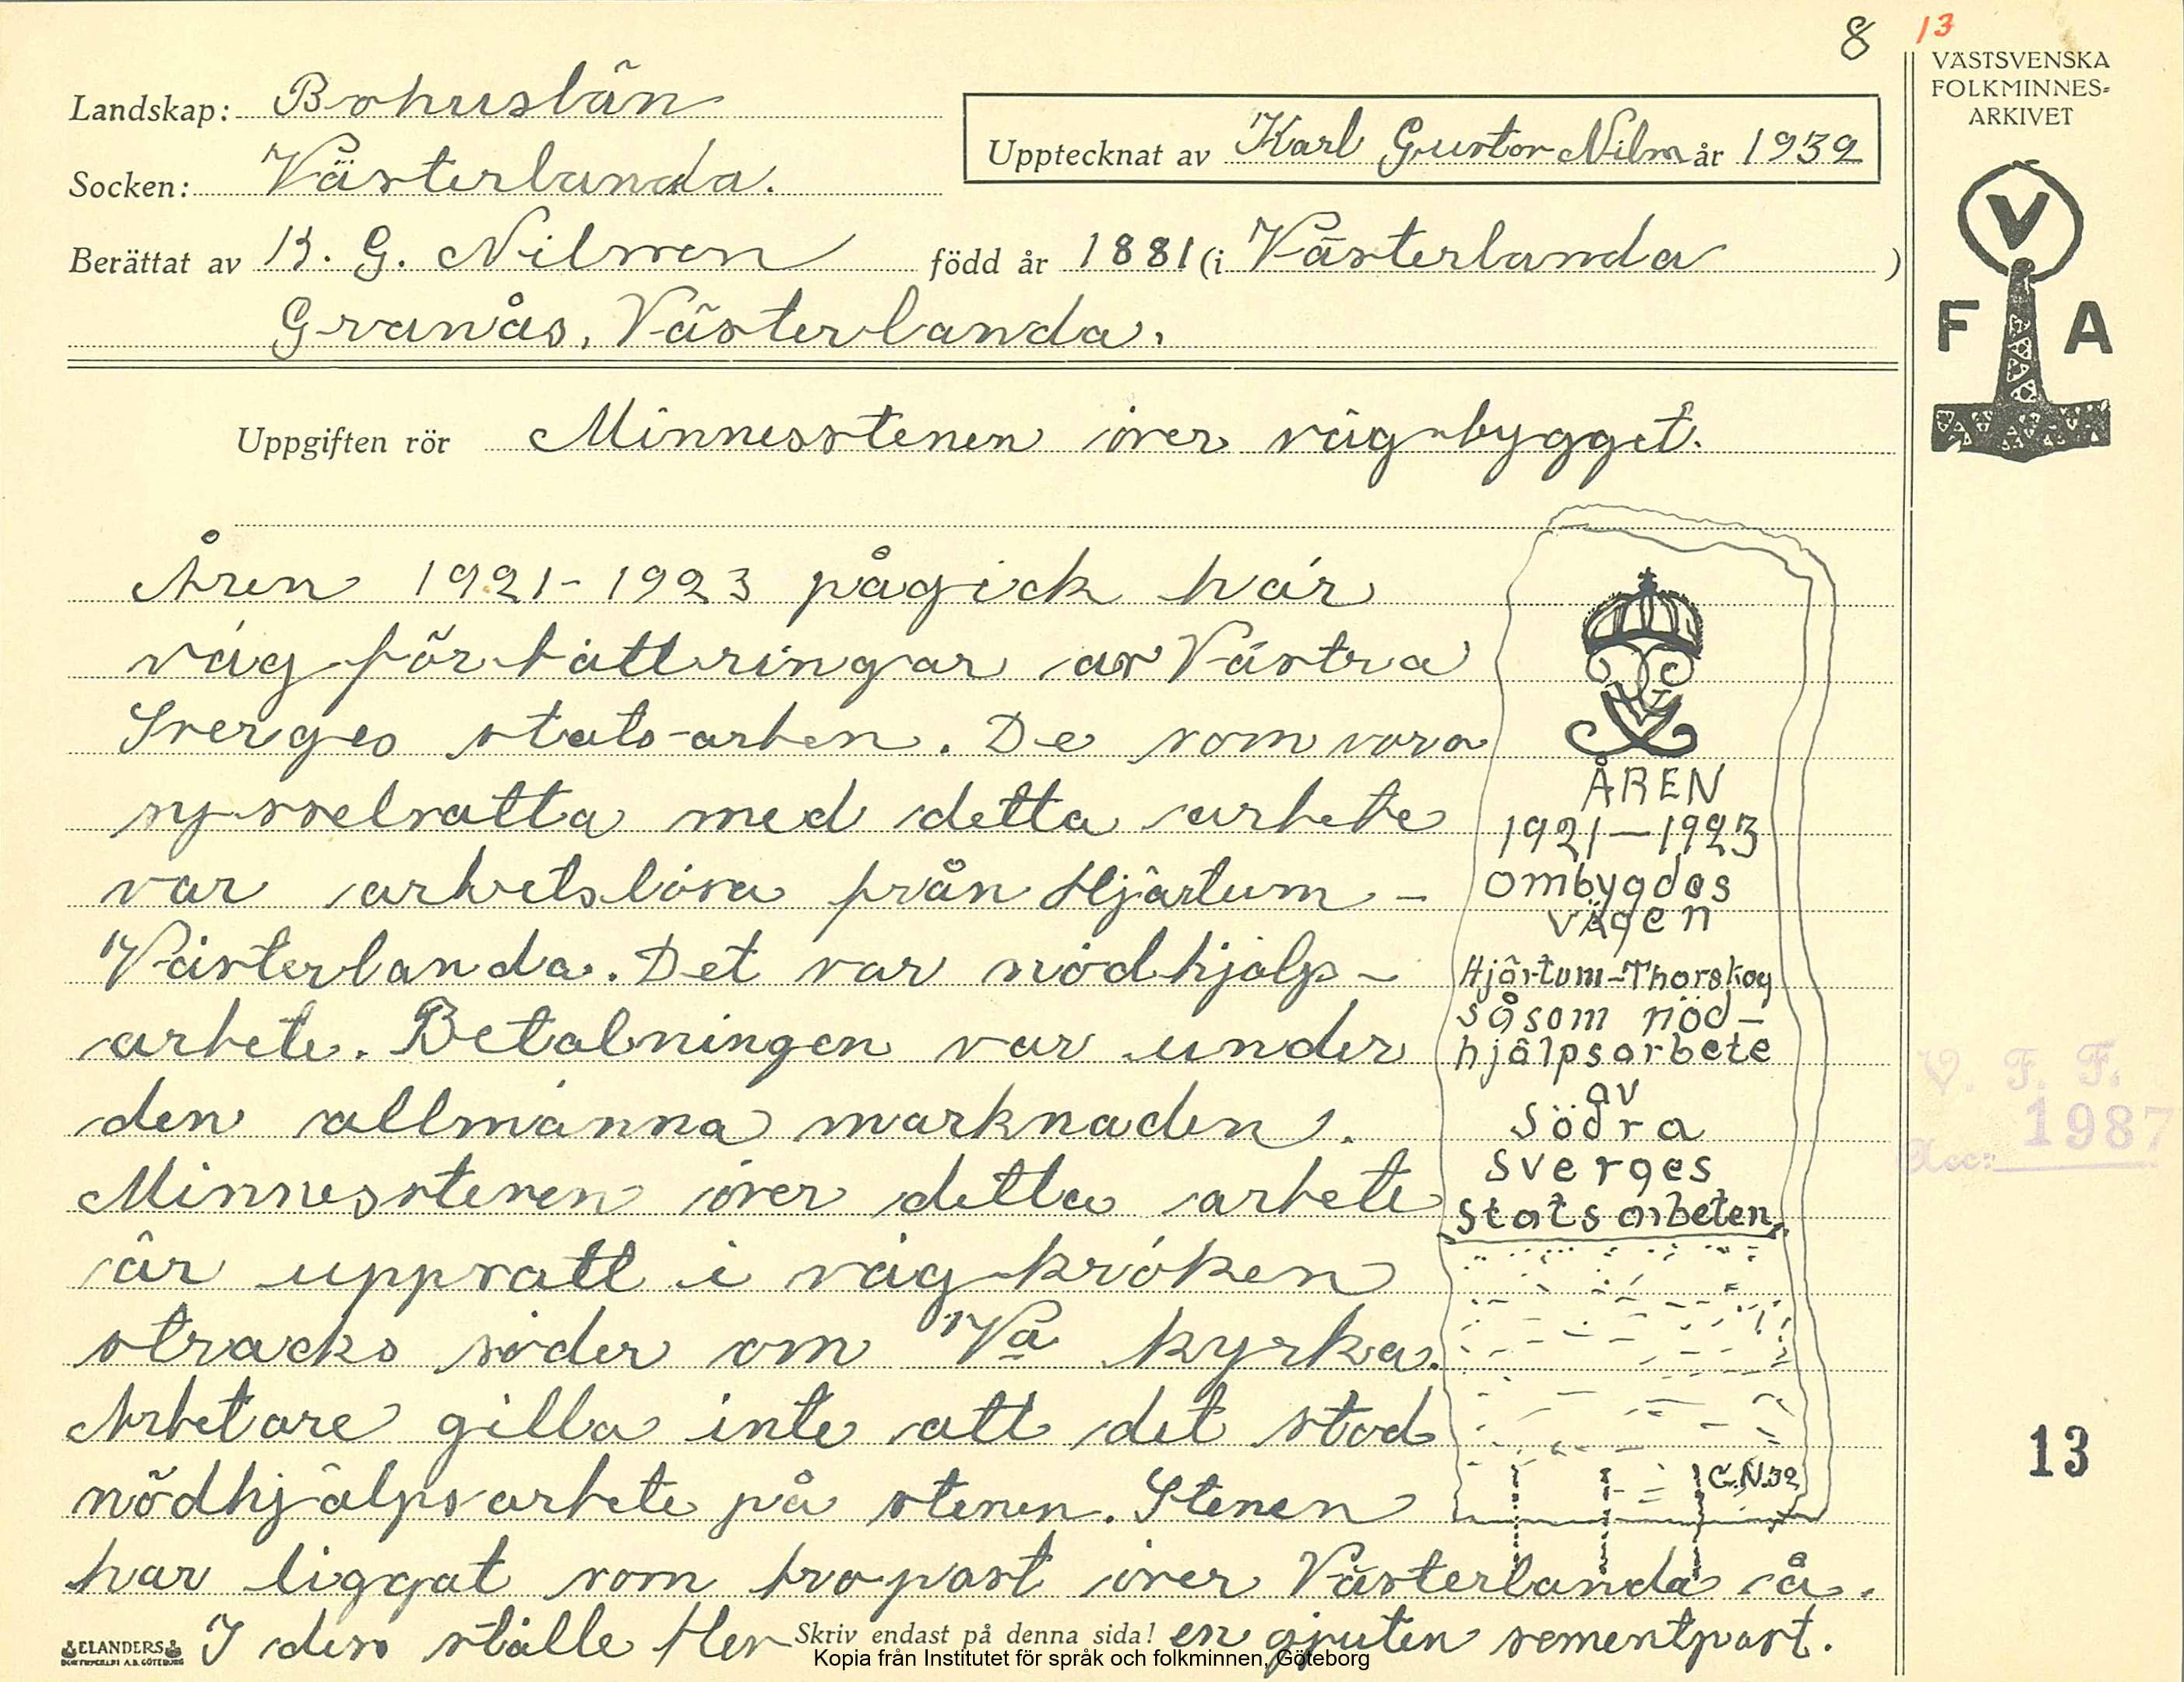 8 13
VÄSTSVENSKA
FOLKMINNES-
ARKIVET
Landskap: Bohuslän
Upptecknat av Karl Gustov Nilm år 1932
Socken: Västerlanda.
Berättat av K. G. Nilmen född år 1881 (i Västerlanda)
Granås, Västerlanda.
V
F A
Uppgiften rör Minnesstenen över väg-bygget.
Åren 1921-1923 pågick här
väg-förbättringar av Västra
Sverges stats-arben. De som vora
sysselsatta med detta arbete
var arbetslösa från Hjärtum -
Västerlanda. Det var nödhjälps-
arbete. Betalningen var under
den allmänna marknaden.
Minnesstenen över detta arbete
är uppsatt i väg-kröken
stracks söder om Va kyrka.
Arbetare gilla inte att det stod
nödhjälpsarbete på stenen. Stenen
har liggat som bro-post över Västerlanda å.
I des ställe blev en gjuten sementpost.
ÅREN
1921—1923
ombygdes
vägen
Hjärtum-Thorskog
såsom nöd-
hjälpsarbete
av
Södra
Sverges
Statsarbeten.
G.N.32
V. F. F.
1987
Acc:
13
ELANDERS
Skriv endast på denna sida!
Kopia från Institutet för språk och folkminnen, Göteborg